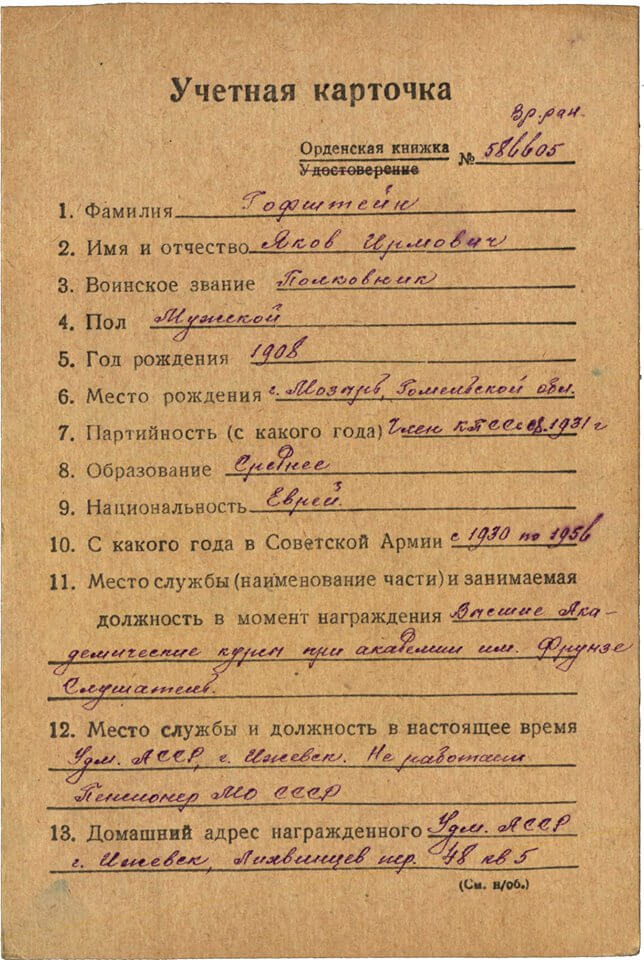 Учетная карточка
Вр. ран.
Орденская книжка № 586605
Удостоверение
1. Фамилия Гофштейн
2. Имя и отчество Яков Ирмович
3. Воинское звание Полковник
4. Пол Мужской
5. Год рождения 1908
6. Место рождения г. Мозырь, Гомельской обл.
7. Партийность (с какого года) Член КПСС с 1931 г
8. Образование Среднее
9. Национальность Еврей
10. С какого года в Советской Армии с 1930 по 1956
11. Место службы (наименование части) и занимаемая
должность в момент награждения Высшие Ака-
демические курсы при академии им. Фрунзе
Слушатель.
12. Место службы и должность в настоящее время
Удм. АССР, г. Ижевск. Не работает
Пенсионер МО СССР
13. Домашний адрес награжденного Удм. АССР
г. Ижевск, Лихвинцев пер. 48 кв 5
(См. н/об.)